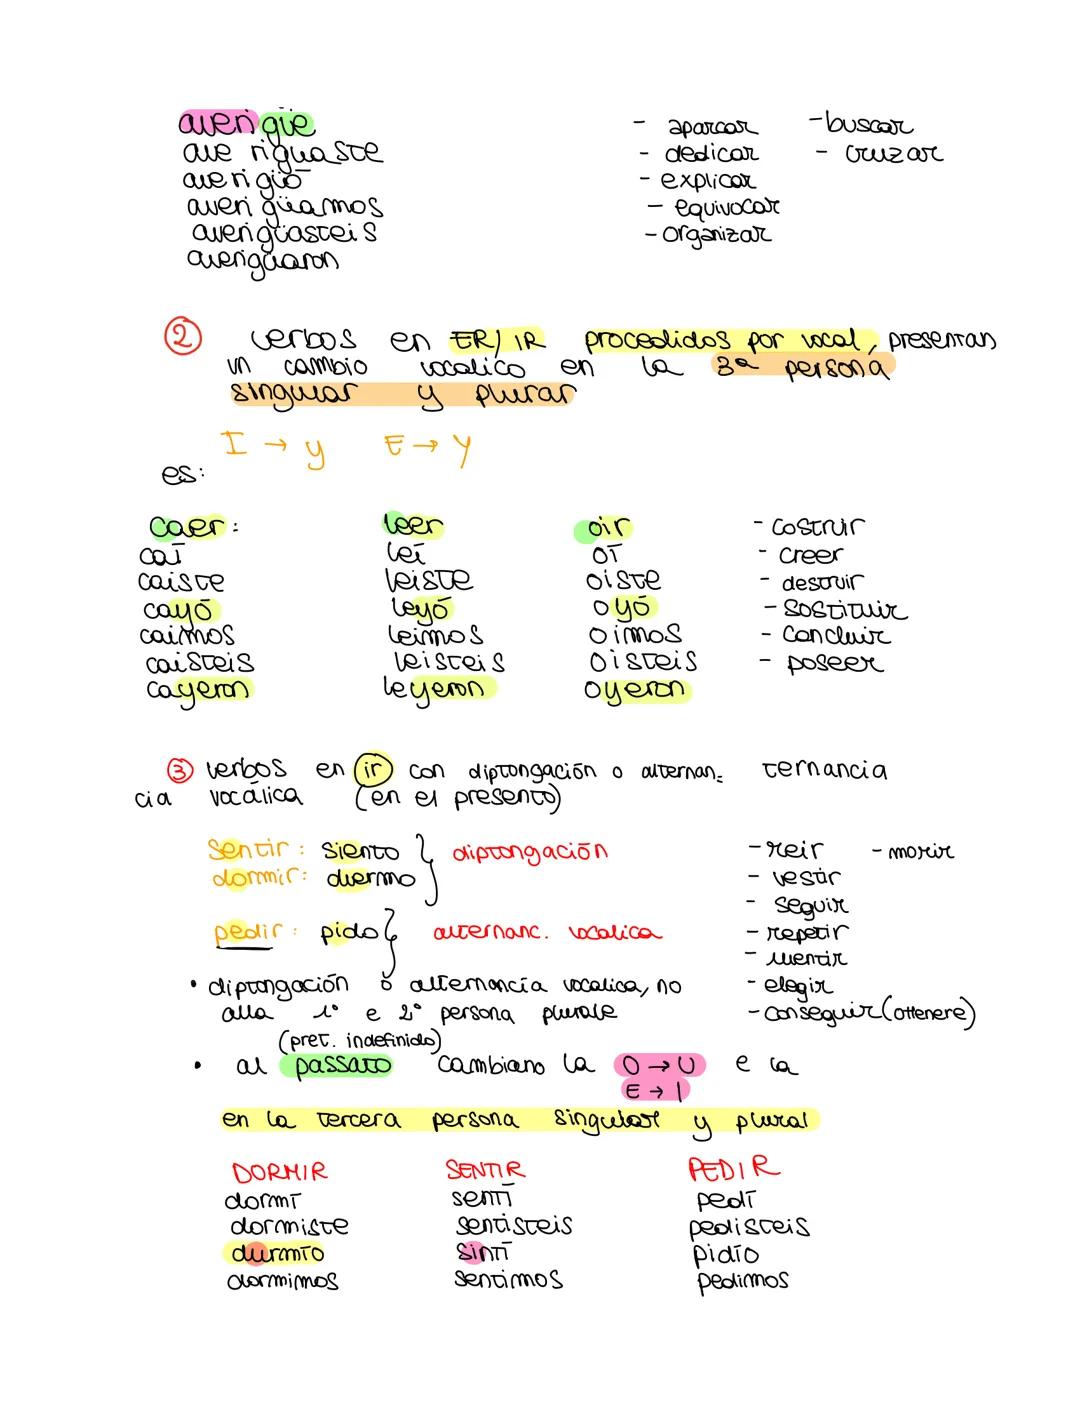 averigüe
averiguaste
averigió
averigüamos
averigüasteis
averigüaron
- aparcar
- dedicar
- explicar
- equivocar
- organizar
- buscar
- cruzar
② verbos en ER/IR procedidos por vocal, presentan
un cambio vocalico en la 3ª persona
singular y plurar
I → y E → Y
es:
caer:
caí
caiste
cayó
caimos
caisteis
cayeron
leer
leí
leiste
leyó
leimos
leisteis
leyeron
oir
oí
oiste
oyó
oimos
oisteis
oyeron
- costruir
- creer
- destruir
- sostituir
- concluir
- poseer
③ verbos en ir con diptongación o alternan= ternancia
cia vocálica (en el presente)
sentir: siento } diptongación
dormir: duermo
pedir: pido } alternanc. vocalica
- reir
- vestir
- seguir
- repetir
- mentir
- elegir
- conseguir (ottenere)
- morir
• diptongación o alternancia vocalica, no
alla 1° e 2° persona plurale
(pret. indefinido)
• al passato cambiano la O → U e la
E → I
en la tercera persona singular y plural
DORMIR
dormí
dormiste
durmío
dormimos
SENTIR
sentí
sentisteis
sintí
sentimos
PEDIR
pedí
pedisteis
pidío
pedimos